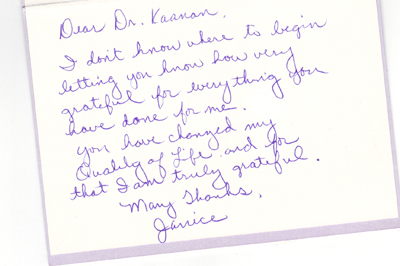 Dear Dr. Kaanan,
I don't know where to begin
letting you know how very
grateful for everything you
have done for me.
You have changed my
Quality of Life and for
that I am truly grateful.
Many Thanks,
Janice